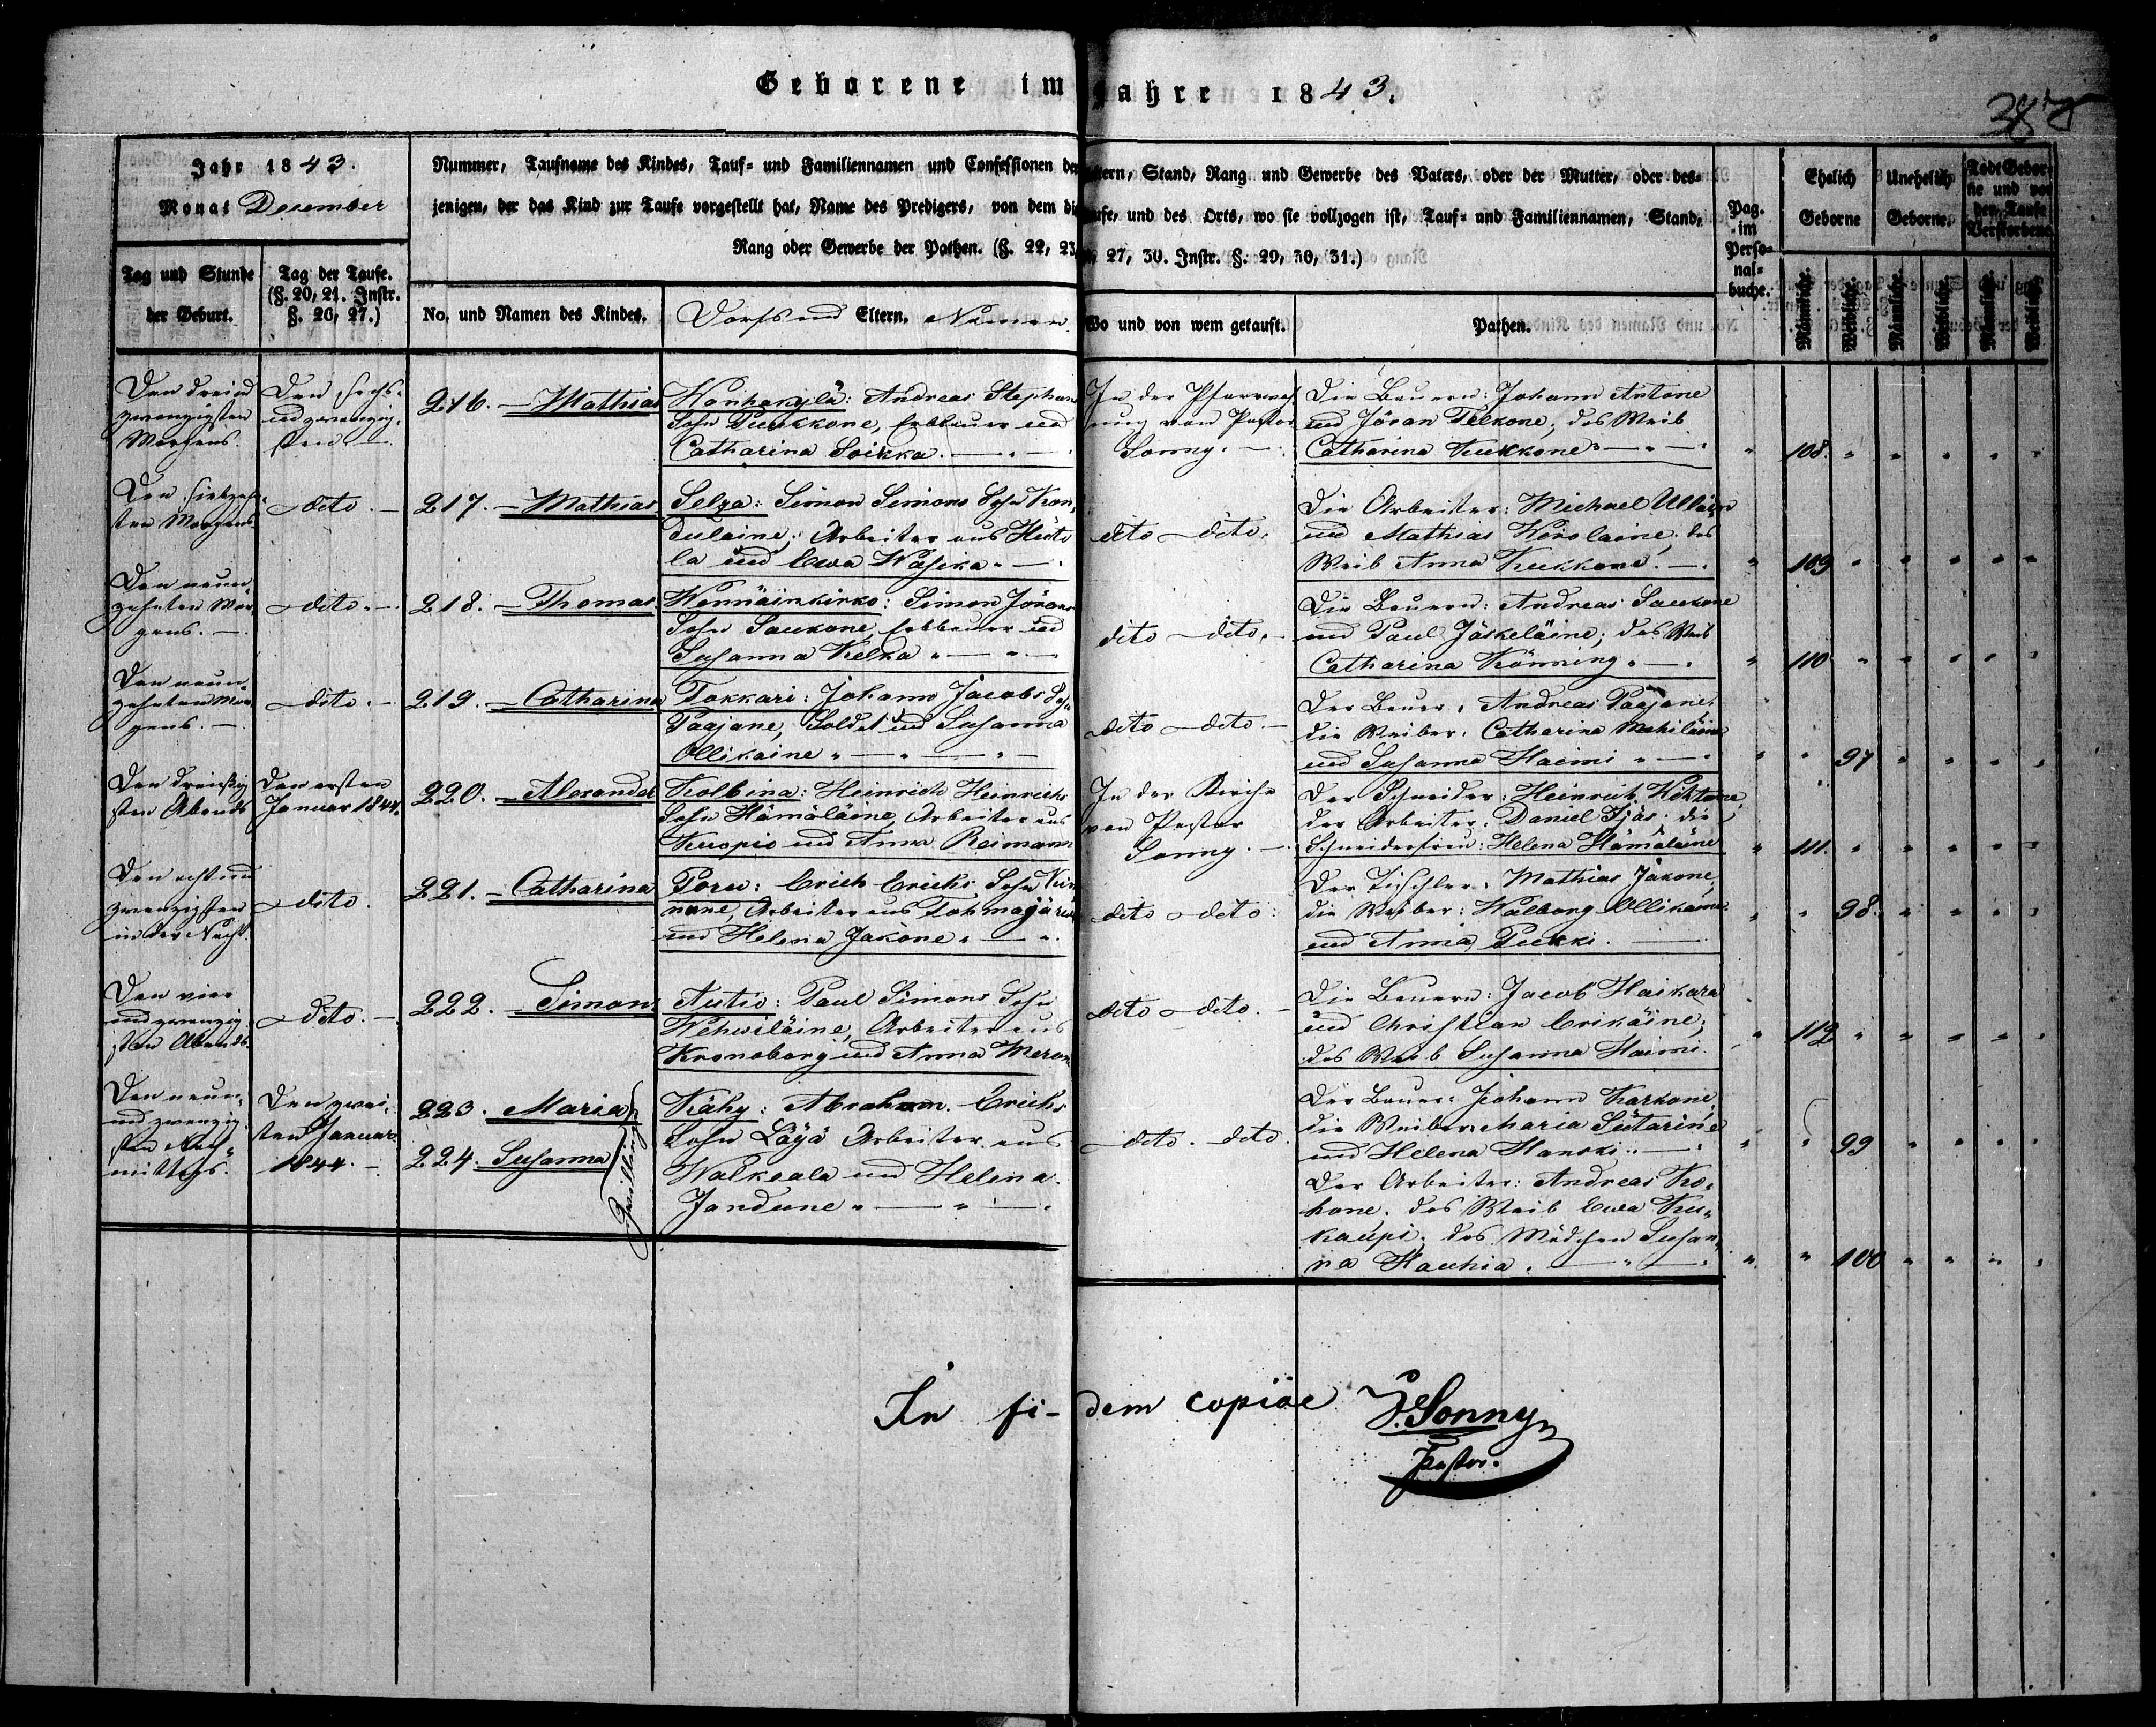 Geborene im Jahre 1843.
Jahr 1843.
Monat December
Nummer, Taufname des Kindes, Tauf- und Familiennamen und Confessionen der Eltern, Stand, Rang und Gewerbe des Vaters, oder der Mutter, oder des-
jenigen, der das Kind zur Taufe vorgestellt hat, Name des Predigers, von dem die Taufe, und des Orts, wo sie vollzogen ist, Tauf- und Familiennamen, Stand,
Rang oder Gewerbe der Pathen. (§. 22, 23, 27, 30. Instr. §. 29, 30, 31.)
Pag. im Perso-nal-buche.
Ehelich Geborne
Unehelich Geborne.
Todt Gebor-ne und vor der Taufe Verstorbene
Tag und Stunde der Geburt.
Tag der Taufe. (§. 20, 21. Instr. §. 26, 27.)
No. und Namen des Kindes.
Dorfs und Eltern. Namen.
Wo und von wem getauft.
Pathen.
Männliche. Weibliche. Männliche. Weibliche. Männliche. Weibliche.
Den drei und
zwanzigsten
Morgens.
Den sechs-
und zwanzig-
sten
216. Mathias
Andreas Stephans
Sohn Pukkone, Erbbauer und
Catharina Soikka.
In der Pfarrwoh-
nung von Pastor
Sonny.
Die Bauern: Johann Antone
und Jöran Telkone, das Weib
Catharina Kukkone
108.
Den siebzehn-
ten Morgens
dito.
217. Mathias
Selza: Simon Simons Sohn Kon-
dulaine, Arbeiter aus Hiito
la und Ewa Wäsika
dito dito.
Die Arbeiter: Michael
und Mathias Kirolaine, das
Weib Anna Kukkone.
109
Den neun-
zehnten Mor-
gens.
dito.
218. Thomas.
Wennäinkirko: Simon Jörans
Sohn Saukone, Erbbauer und
Susanna Kelka
dito dito.
Die Bauern: Andreas Saukone
und Paul Jäskeläine, das Weib
Catharina Könning
110
Den neun-
zehnten Mor-
gens.
dito.
219. Catharina
Tokkari: Johann Jacobs Sohn
Paajane, Soldat und Susanna
Ollikaine
dito dito.
Der Bauer: Andreas Paajane,
die Weiber: Catharina
und Susanna Haimi
97
Den dreißig-
sten Abends
Den ersten
Januar 1844.
220. Alexander
Kolbina: Heinrich Heinrichs
Sohn Hämäläine, Arbeiter aus
Kuopio und Anna Reimann
In der Kirche
von Pastor
Sonny.
Der Schneider: Heinrich
der Arbeiter: Daniel die
Schneidersfrau: Helena Hämäläine
111.
Den acht und
zwanzigsten
in der Nacht.
dito.
221. Catharina
Poru: Erich Erichs Sohn Kin
nune, Arbeiter aus Tohmajärwi
und Helena Jakone
dito dito.
Der Tischler: Mathias Jakone,
die Weiber: Walborg Ollikaine
und Anna Pukki.
98.
Den vier
und zwanzig-
sten Abends.
dito.
222. Simon
Autio: Paul Simons Sohn
Wehwiläine, Arbeiter aus
Kronoborg und Anna
dito dito.
Die Bauern: Jacob Haikara
und Christian Erikäine,
das Weib Susanna Haimi.
112
Den neun-
und zwanzig-
sten Nach-
mittags.
Den zwei-
ten Januar
1844.
223. Maria
224. Susanna
Zwillinge
Kähy: Abraham Erichs
Sohn Läyä Arbeiter aus
Walkeala und Helena
Jandune
dito. dito.
Der Bauer: Johann Karkone,
die Weiber: Maria Sutarine
und Helena Hanski
99
Der Arbeiter: Andreas Ko-
kone, das Weib Ewa Ku-
kaupi, das Mädchen Susan-
na Haukia.
100
In fi- dem copiae J. Sonny
Pastor.